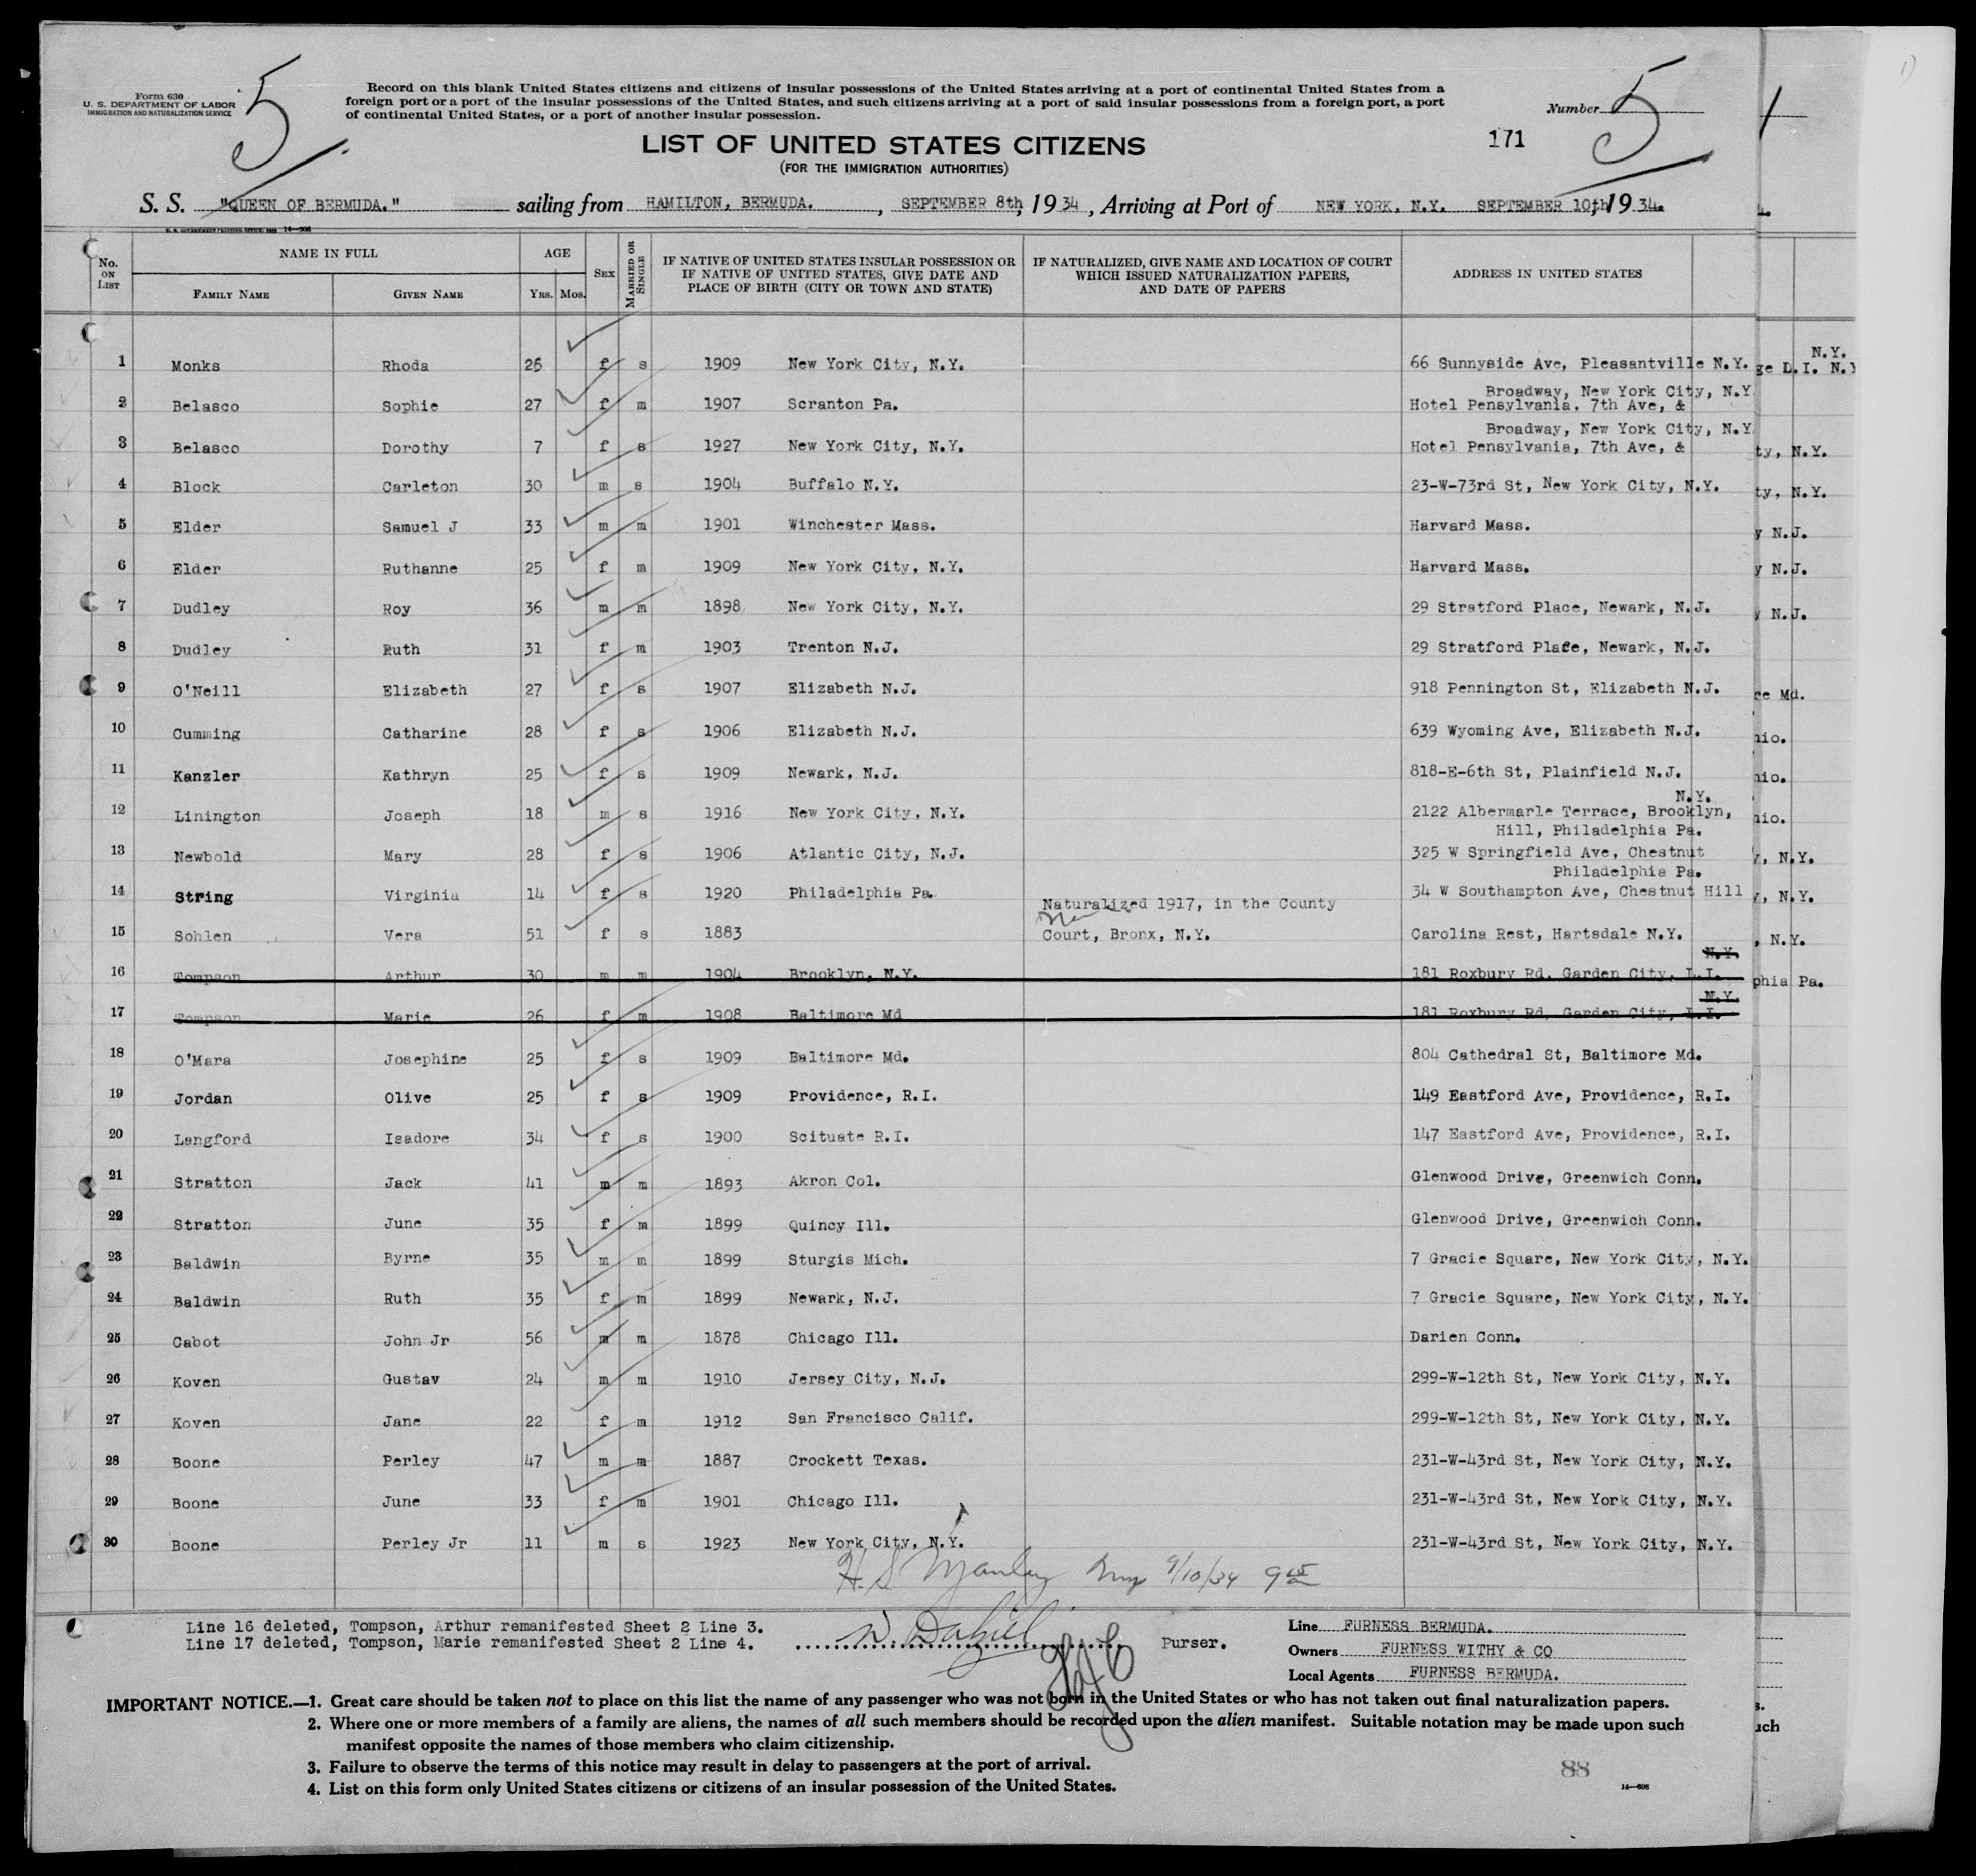 Form 630
U. S. DEPARTMENT OF LABOR
IMMIGRATION AND NATURALIZATION SERVICE
5
Record on this blank United States citizens and citizens of insular possessions of the United States arriving at a port of continental United States from a
foreign port or a port of the insular possessions of the United States, and such citizens arriving at a port of said insular possessions from a foreign port, a port
of continental United States, or a port of another insular possession.
Number 5
171
LIST OF UNITED STATES CITIZENS
(FOR THE IMMIGRATION AUTHORITIES)
S. S. "QUEEN OF BERMUDA." sailing from HAMILTON, BERMUDA. , SEPTEMBER 8th, 1934, Arriving at Port of NEW YORK, N.Y. SEPTEMBER 10th, 1934.
No. ON LIST NAME IN FULL AGE SEX MARRIED OR SINGLE IF NATIVE OF UNITED STATES INSULAR POSSESSION OR IF NATIVE OF UNITED STATES, GIVE DATE AND PLACE OF BIRTH (CITY OR TOWN AND STATE) IF NATURALIZED, GIVE NAME AND LOCATION OF COURT WHICH ISSUED NATURALIZATION PAPERS, AND DATE OF PAPERS ADDRESS IN UNITED STATES
FAMILY NAME GIVEN NAME YRS. MOS.
1 Monks Rhoda 25 f s 1909 New York City, N.Y. 66 Sunnyside Ave, Pleasantville N.Y.
Broadway, New York City, N.Y
2 Belasco Sophie 27 f m 1907 Scranton Pa. Hotel Pensylvania. 7th Ave, &
Broadway, New York City, N.Y
3 Belasco Dorothy 7 f s 1927 New York City, N.Y. Hotel Pensylvania, 7th Ave, &
4 Block Carleton 30 m s 1904 Buffalo N.Y. 23-W-73rd St, New York City, N.Y.
5 Elder Samuel J 33 m m 1901 Winchester Mass. Harvard Mass.
6 Elder Ruthanne 25 f m 1909 New York City, N.Y. Harvard Mass.
7 Dudley Roy 36 m m 1898 New York City, N.Y. 29 Stratford Place, Newark, N.J.
8 Dudley Ruth 31 f m 1903 Trenton N.J. 29 Stratford Place, Newark, N.J.
9 O'Neill Elizabeth 27 f s 1907 Elizabeth N.J. 918 Pennington St, Elizabeth N.J.
10 Cumming Catharine 28 f s 1906 Elizabeth N.J. 639 Wyoming Ave, Elizabeth N.J.
11 Kanzler Kathryn 25 f s 1909 Newark, N.J. 818-E-6th St, Plainfield N.J.
N.Y.
12 Linington Joseph 18 m s 1916 New York City, N.Y. 2122 Albermarle Terrace, Brooklyn,
Hill, Philadelphia Pa.
13 Newbold Mary 28 f s 1906 Atlantic City, N.J. 325 W Springfield Ave, Chestnut
Philadelphia Pa.
14 String Virginia 14 f s 1920 Philadelphia Pa. 34 W Southampton Ave, Chestnut Hill
Naturalized 1917, in the County
15 Sohlen Vera 51 f s 1883 Court, Bronx, N.Y. Carolina Rest, Hartsdale N.Y.
N.Y.
16 Tompson Arthur 30 m m 1904 Brooklyn, N.Y. 181 Roxbury Rd. Garden City, L.I.
N.Y.
17 Tompson Marie 26 f m 1908 Baltimore Md 181 Roxbury Rd, Garden City, L.I.
18 O'Mara Josephine 25 f s 1909 Baltimore Md. 804 Cathedral St, Baltimore Md.
19 Jordan Olive 25 f s 1909 Providence, R.I. 149 Eastford Ave, Providence, R.I.
20 Langford Isadore 34 f s 1900 Scituate R.I. 147 Eastford Ave, Providence, R.I.
21 Stratton Jack 41 m m 1893 Akron Col. Glenwood Drive, Greenwich Conn.
22 Stratton June 35 f m 1899 Quincy Ill. Glenwood Drive, Greenwich Conn.
23 Baldwin Byrne 35 m m 1899 Sturgis Mich. 7 Gracie Square, New York City, N.Y.
24 Baldwin Ruth 35 f m 1899 Newark, N.J. 7 Gracie Square, New York City, N.Y.
25 Cabot John Jr 56 m m 1878 Chicago Ill. Darien Conn.
26 Koven Gustav 24 m m 1910 Jersey City, N.J. 299-W-12th St, New York City, N.Y.
27 Koven Jane 22 f m 1912 San Francisco Calif. 299-W-12th St, New York City, N.Y.
28 Boone Perley 47 m m 1887 Crockett Texas. 231-W-43rd St, New York City, N.Y.
29 Boone June 33 f m 1901 Chicago Ill. 231-W-43rd St, New York City, N.Y.
30 Boone Perley Jr 11 m s 1923 New York City, N.Y. 231-W-43rd St, New York City, N.Y.
H. S. Manley 9/10/34 9
Line 16 deleted, Tompson, Arthur remanifested Sheet 2 Line 3.
Line 17 deleted, Tompson, Marie remanifested Sheet 2 Line 4.
Purser.
Line FURNESS BERMUDA.
Owners FURNESS WITHY & CO
Local Agents FURNESS BERMUDA.
IMPORTANT NOTICE.—1. Great care should be taken not to place on this list the name of any passenger who was not born in the United States or who has not taken out final naturalization papers.
2. Where one or more members of a family are aliens, the names of all such members should be recorded upon the alien manifest. Suitable notation may be made upon such
manifest opposite the names of those members who claim citizenship.
3. Failure to observe the terms of this notice may result in delay to passengers at the port of arrival.
4. List on this form only United States citizens or citizens of an insular possession of the United States.
88
14—608